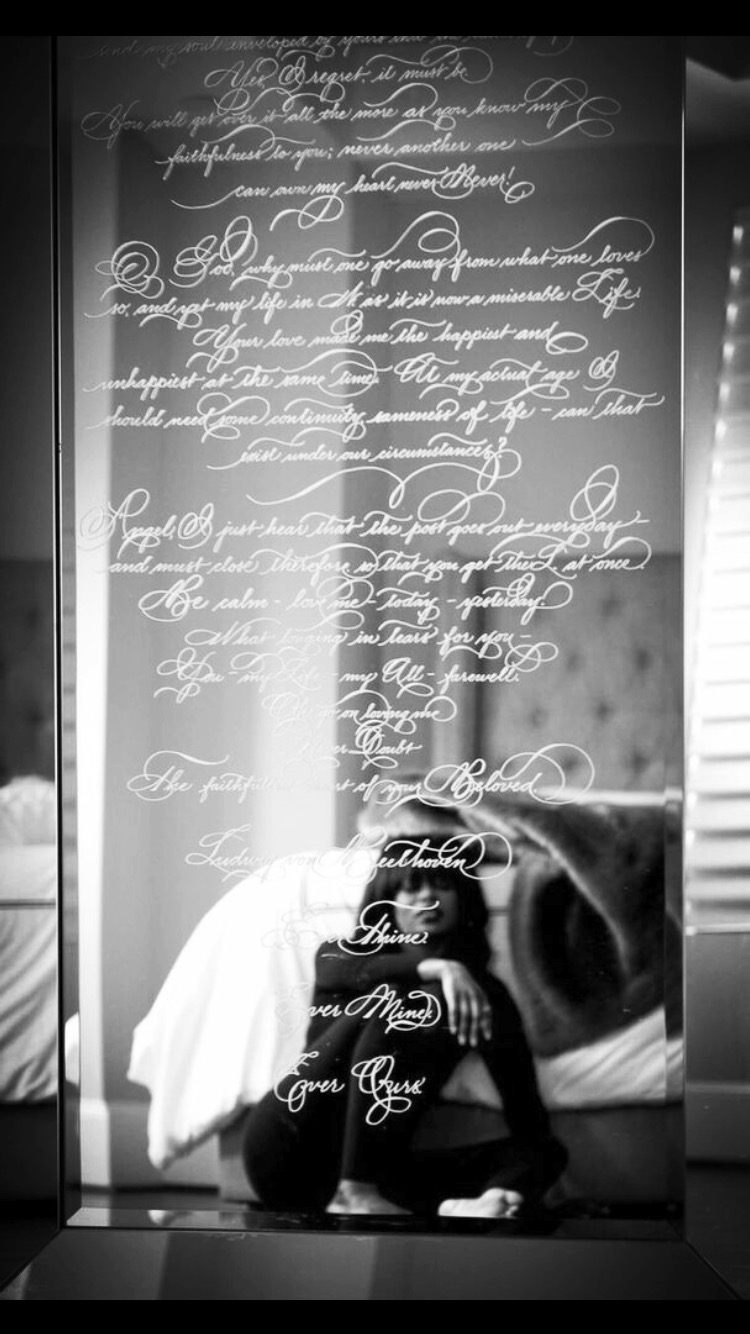 and my soul enveloped by yours into the
Yes I regret, it must be
You will get over it all the more as you know my
faithfulness to you; never another one
can own my heart never Never!
O God, why must one go away from what one loves
so, and yet my life in W. as it is now a miserable Life.
Your love made me the happiest and
unhappiest at the same time. At my actual age I
should need some continuity, sameness of life - can that
exist under our circumstances?
Angel, I just hear that the post goes out everyday -
and must close therefore so that you get the L. at once.
Be calm - love me - today - yesterday.
What longing in tears for you -
You - my Life - my All - farewell.
go on loving me
never Doubt
The faithful heart of your Beloved.
Ludwig van Beethoven
Ever Thine.
Ever Mine.
Ever Ours.